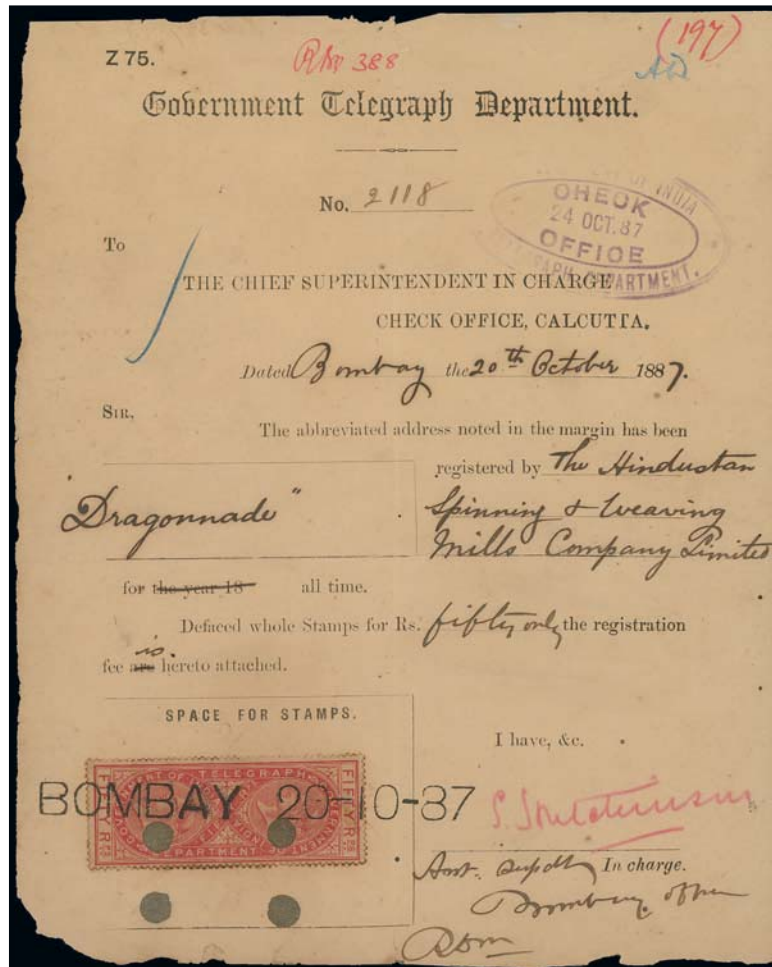 Z 75.
388
(197)
Government Telegraph Department.
No. 2118
OF INDIA
CHECK
24 OCT. 87
OFFICE
DEPARTMENT.
To
THE CHIEF SUPERINTENDENT IN CHARGE
CHECK OFFICE, CALCUTTA.
Dated Bombay the 20th October 1887.
SIR,
The abbreviated address noted in the margin has been
registered by The Hindustan
"Dragonnade"
Spinning & Weaving
Mills Company Limited
for the year 18 all time.
Defaced whole Stamps for Rs. fifty only the registration
is
fee are hereto attached.
SPACE FOR STAMPS.
I have, &c.
GOVERNMENT OF TELEGRAPH
FIFTY RS
BOMBAY 20-10-87
DEPARTMENT
S. Hutchinson
Asst. Supdt In charge.
Bombay office